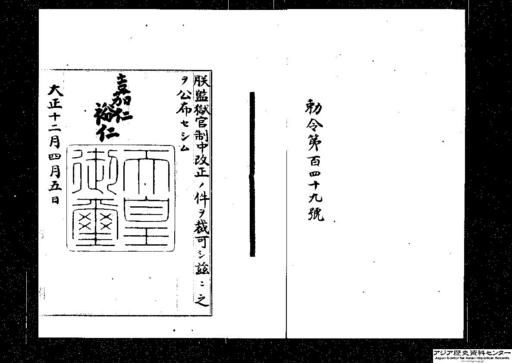 勅令第百四十九號
朕監獄官制中改正ノ件ヲ裁可シ茲ニ之
ヲ公布セシム
嘉仁
裕仁
天皇
御璽
大正十二年四月五日
アジア歴史資料センター
Japan Center for Asian Historical Records